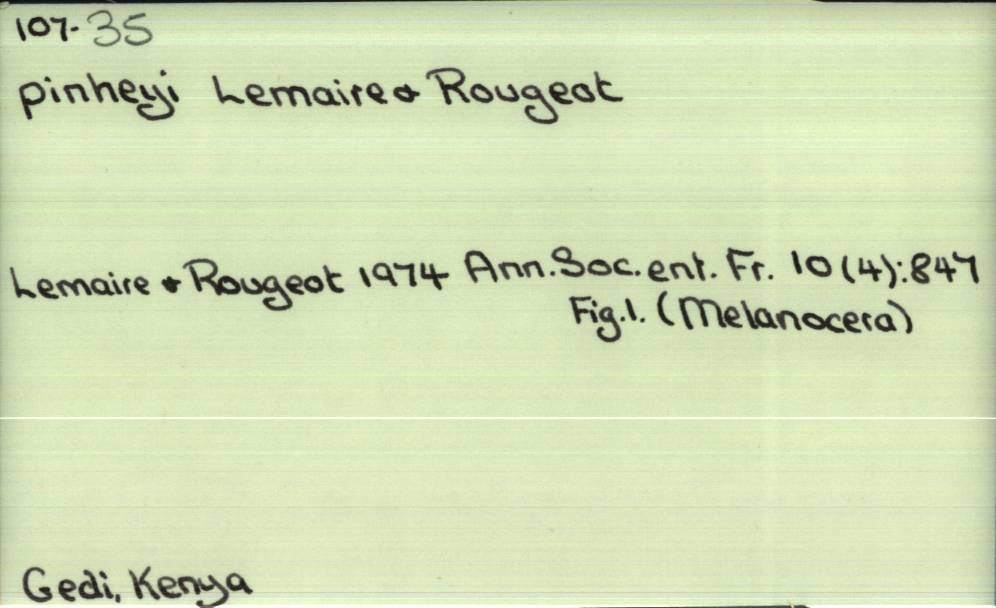 107-35
pinheyi Lemaire & Rougeot
Lemaire & Rougeot 1974 Ann. Soc. ent. Fr. 10 (4): 847
Fig. 1. (Melanocera)
Gedi, Kenya